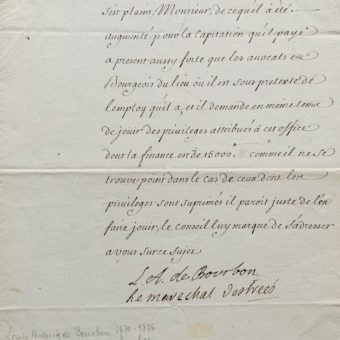 s'est plaint, Monsieur, de ce qu'il a été
augmenté pour la Capitation qu'il paye
a present aussy forte que les avocats et
Bourgeois du lieu ou il est sous pretexte de
lemploy qu'il a, et il demande en même tems
de jouir des privileges attribués à cet office
dont la finance est de 15000.# comme il ne se
trouve point dans le cas de ceux dont les
privileges sont suprimés il paroit juste de l'en
faire jouir, le conseil luy marque de s'adresser
a vous sur ce sujet
L. A. de Bourbon
Le marechal Destrées
Louis Auguste de Bourbon 1670 - 1736